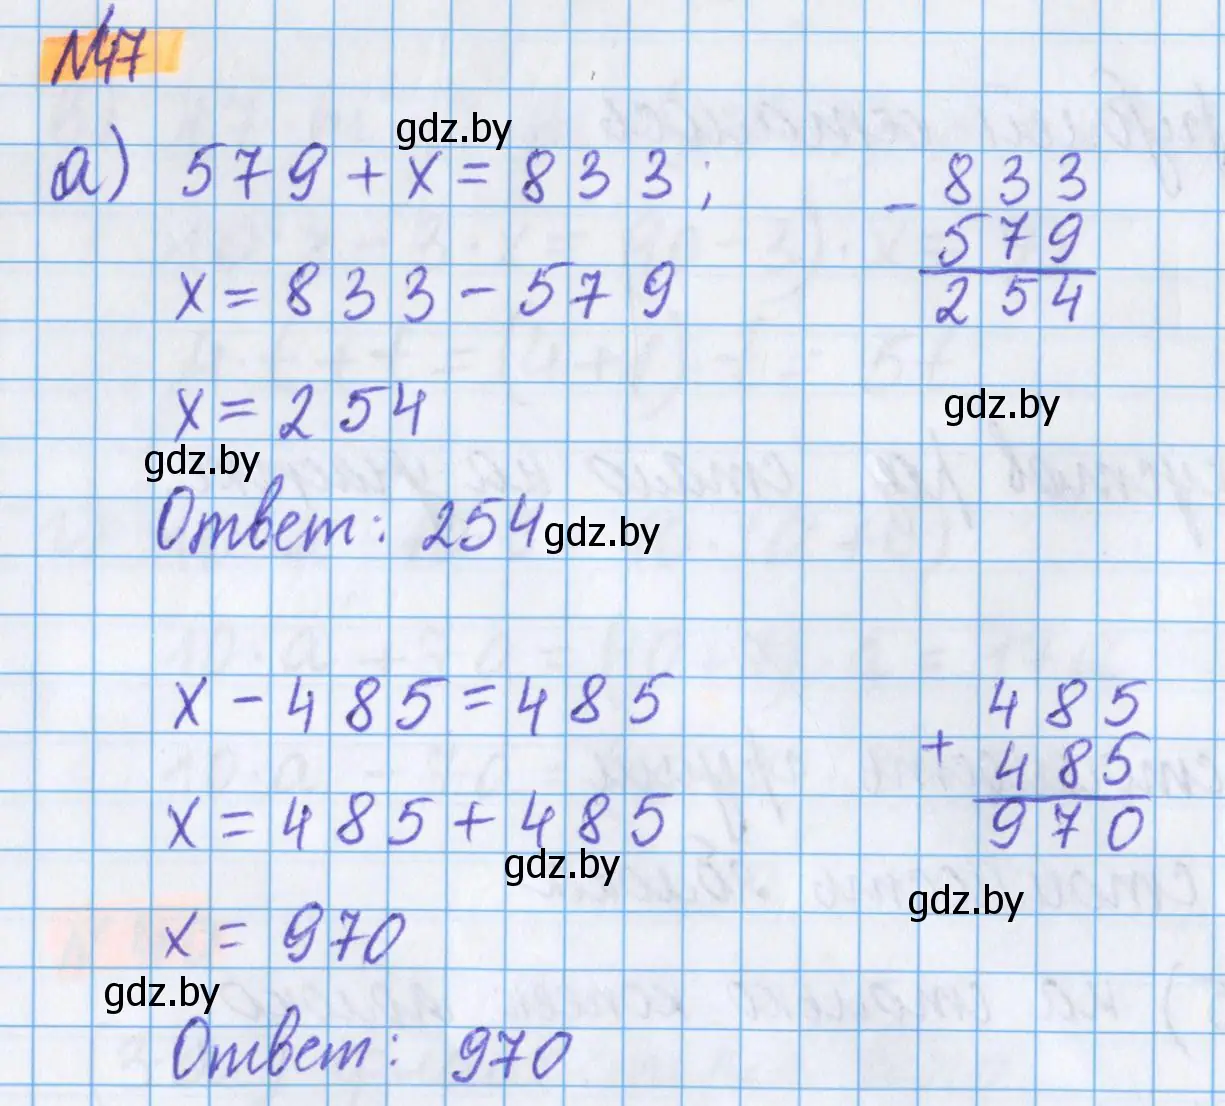 №47
gdz.by
а) 579 + x = 833;
x = 833 - 579
x = 254
gdz.by
Ответ: 254
gdz.by
- 833
579
254
gdz.by
x - 485 = 485
x = 485 + 485
gdz.by
x = 970
gdz.by
Ответ: 970
485
+ 485
970
gdz.by